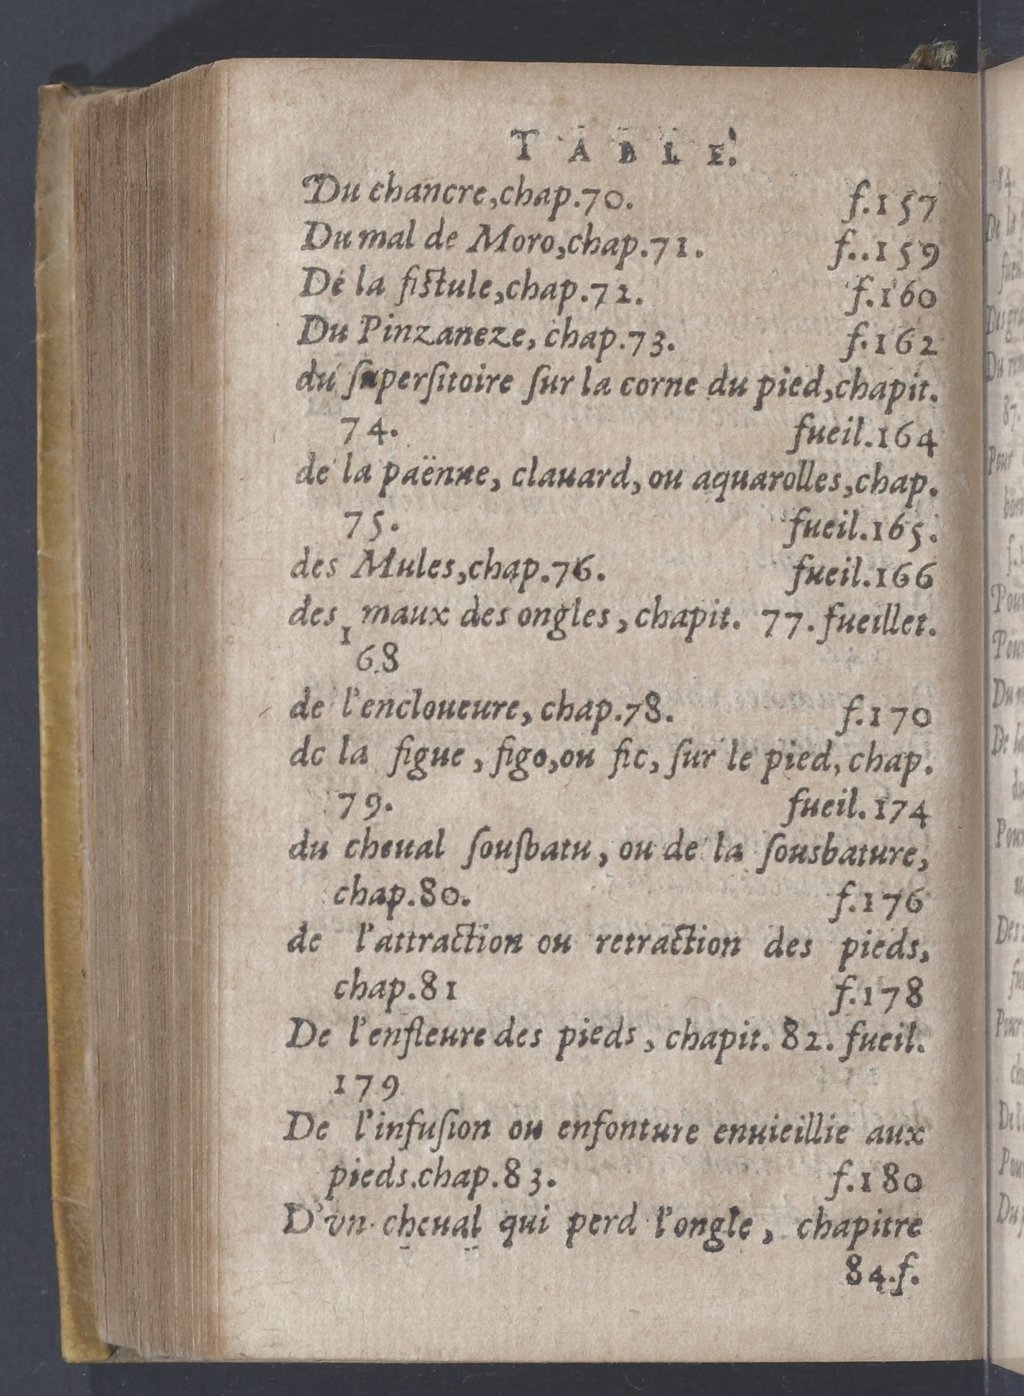 TABLE.
Du chancre,chap.70. f.157
Du mal de Moro,chap.71. f..159
De la fistule,chap.72. f.160
Du Pinzaneze, chap.73. f.162
du ſuperſitoire ſur la corne du pied,chapit.
74. fueil.164
de la paënne, clauard, ou aquarolles,chap.
75. fueil.165.
des Mules,chap.76. fueil.166
des maux des ongles, chapit. 77. fueillet.
168
de l'encloueure, chap.78. f.170
de la figue, figo,ou fic, ſur le pied, chap.
79. fueil.174
du cheual ſouſbatu, ou de la ſousbature,
chap.80. f.176
de l'attraction ou retraction des pieds,
chap.81 f.178
De l'enfleure des pieds, chapit. 82. fueil.
179
De l'infuſion ou enfonture enuieillie aux
pieds.chap.83. f.180
D'vn cheual qui perd l'ongle, chapitre
84.f.